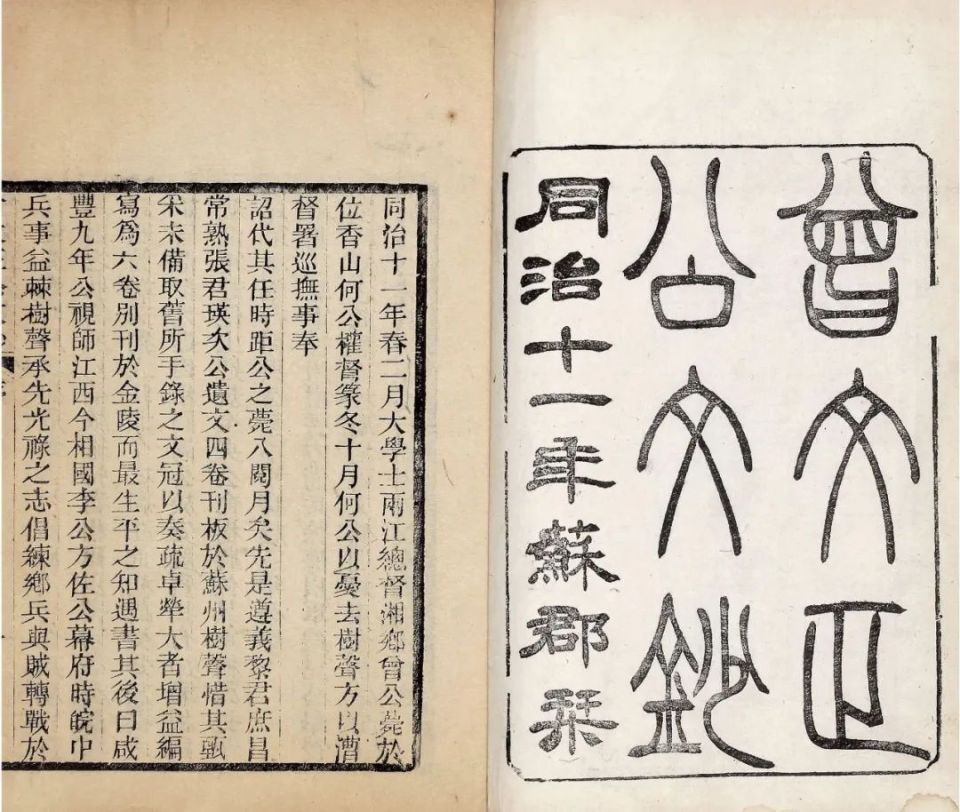 曾文正
公文鈔
同治十一年蘇郡栞
同治十一年春二月大學士兩江總督湘鄉曾公薨於
位香山何公權督篆冬十月何公以憂去樹聲方以漕
督署巡撫事奉
詔代其任時距公之薨八閱月矣先是遵義黎君庶昌
常熟張君瑛次公遺文四卷刊板於蘇州樹聲惜其蒐
宋未備取舊所手錄之文冠以奏疏卓犖大者增益編
寫為六卷別刊於金陵而最生平之知遇書其後曰咸
豐九年公視師江西今相國李公方佐公幕府時皖中
兵事益棘樹聲承先光祿之志倡練鄉兵與賊轉戰於